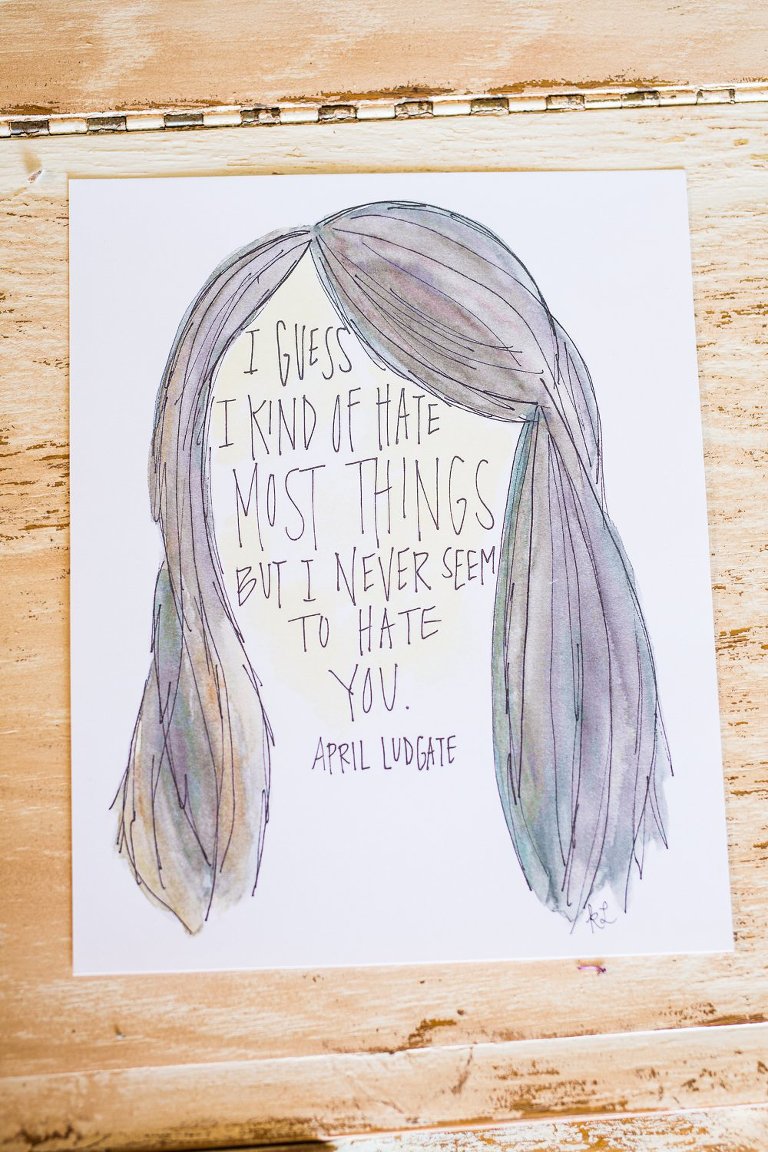 I GUESS
I KIND OF HATE
MOST THINGS
BUT I NEVER SEEM
TO HATE
YOU.
APRIL LUDGATE
KL